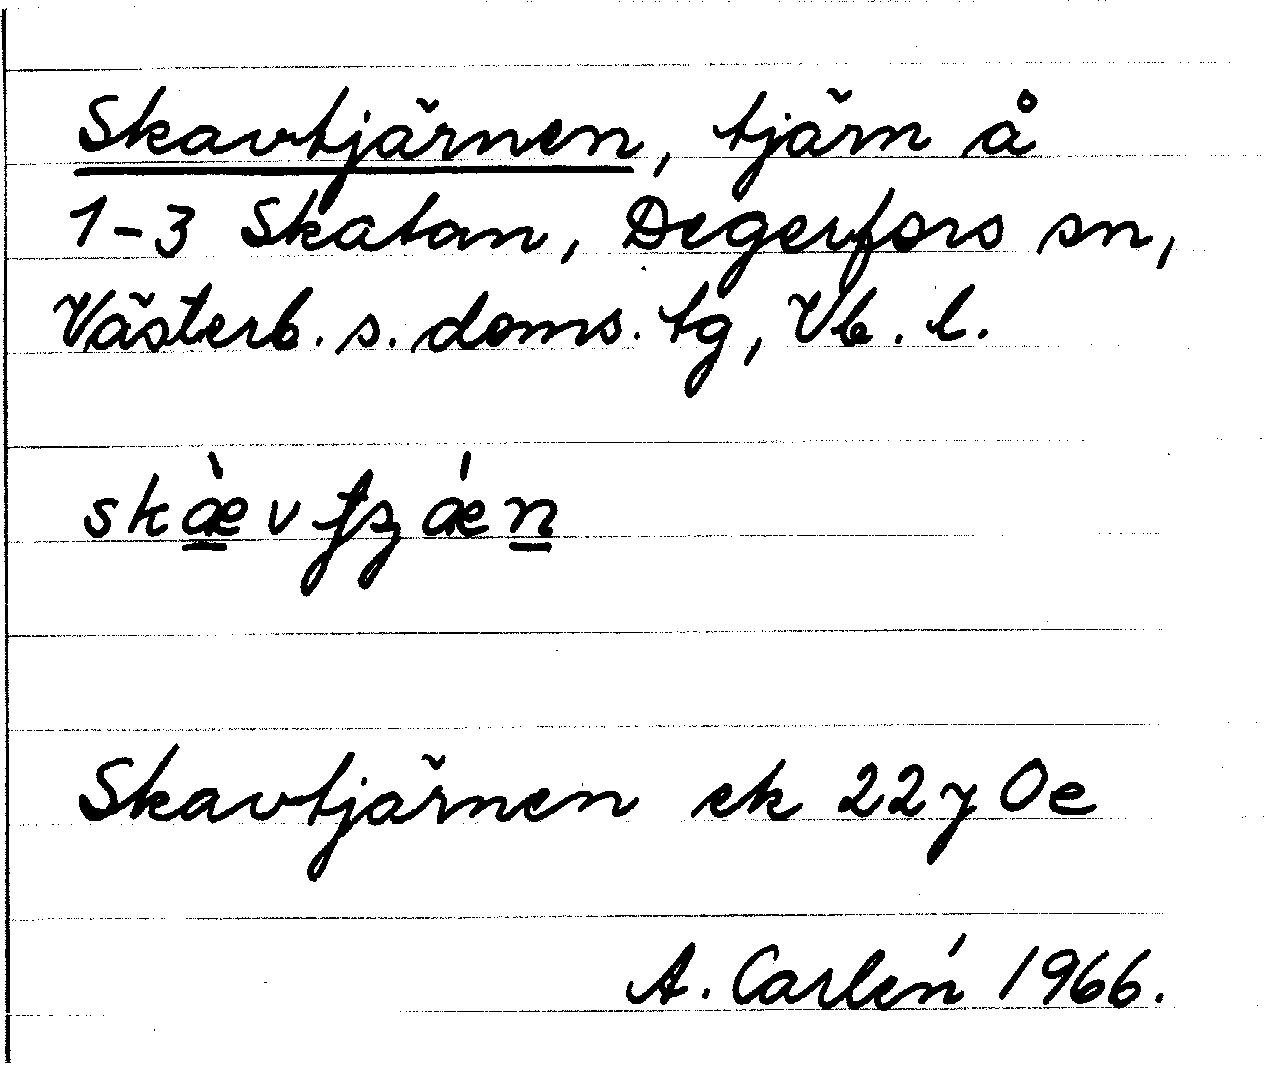 Skavtjärnen, tjärn å
1-3 Skatan, Degerfors sn,
Västerb. s. doms. tg, Vb. l.
Skavtjärnen ek 22 y Oe
A. Carlén 1966.